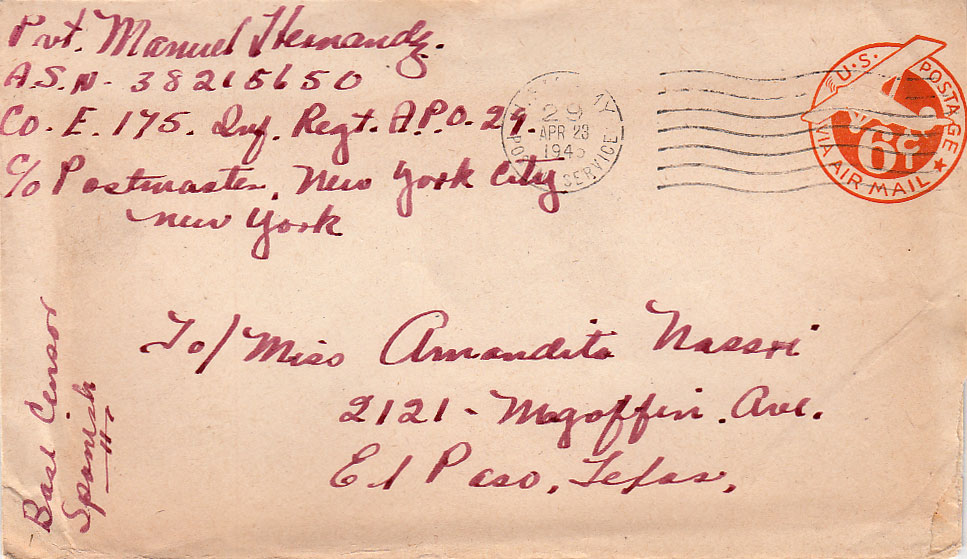 Pvt. Manuel Hernandz.
A.S.N- 38215650
Co. E. 175. Inf. Regt. A.P.O. 29.
c/o Postmaster, New York City
New York
29
APR 23
194
SERVICE
U.S. POSTAGE
6¢
VIA AIR MAIL
To/ Miss Amandita Nassri
2121 - Magoffin. Ave.
El Paso, Texas,
-Base Censor
Spanish
-H-